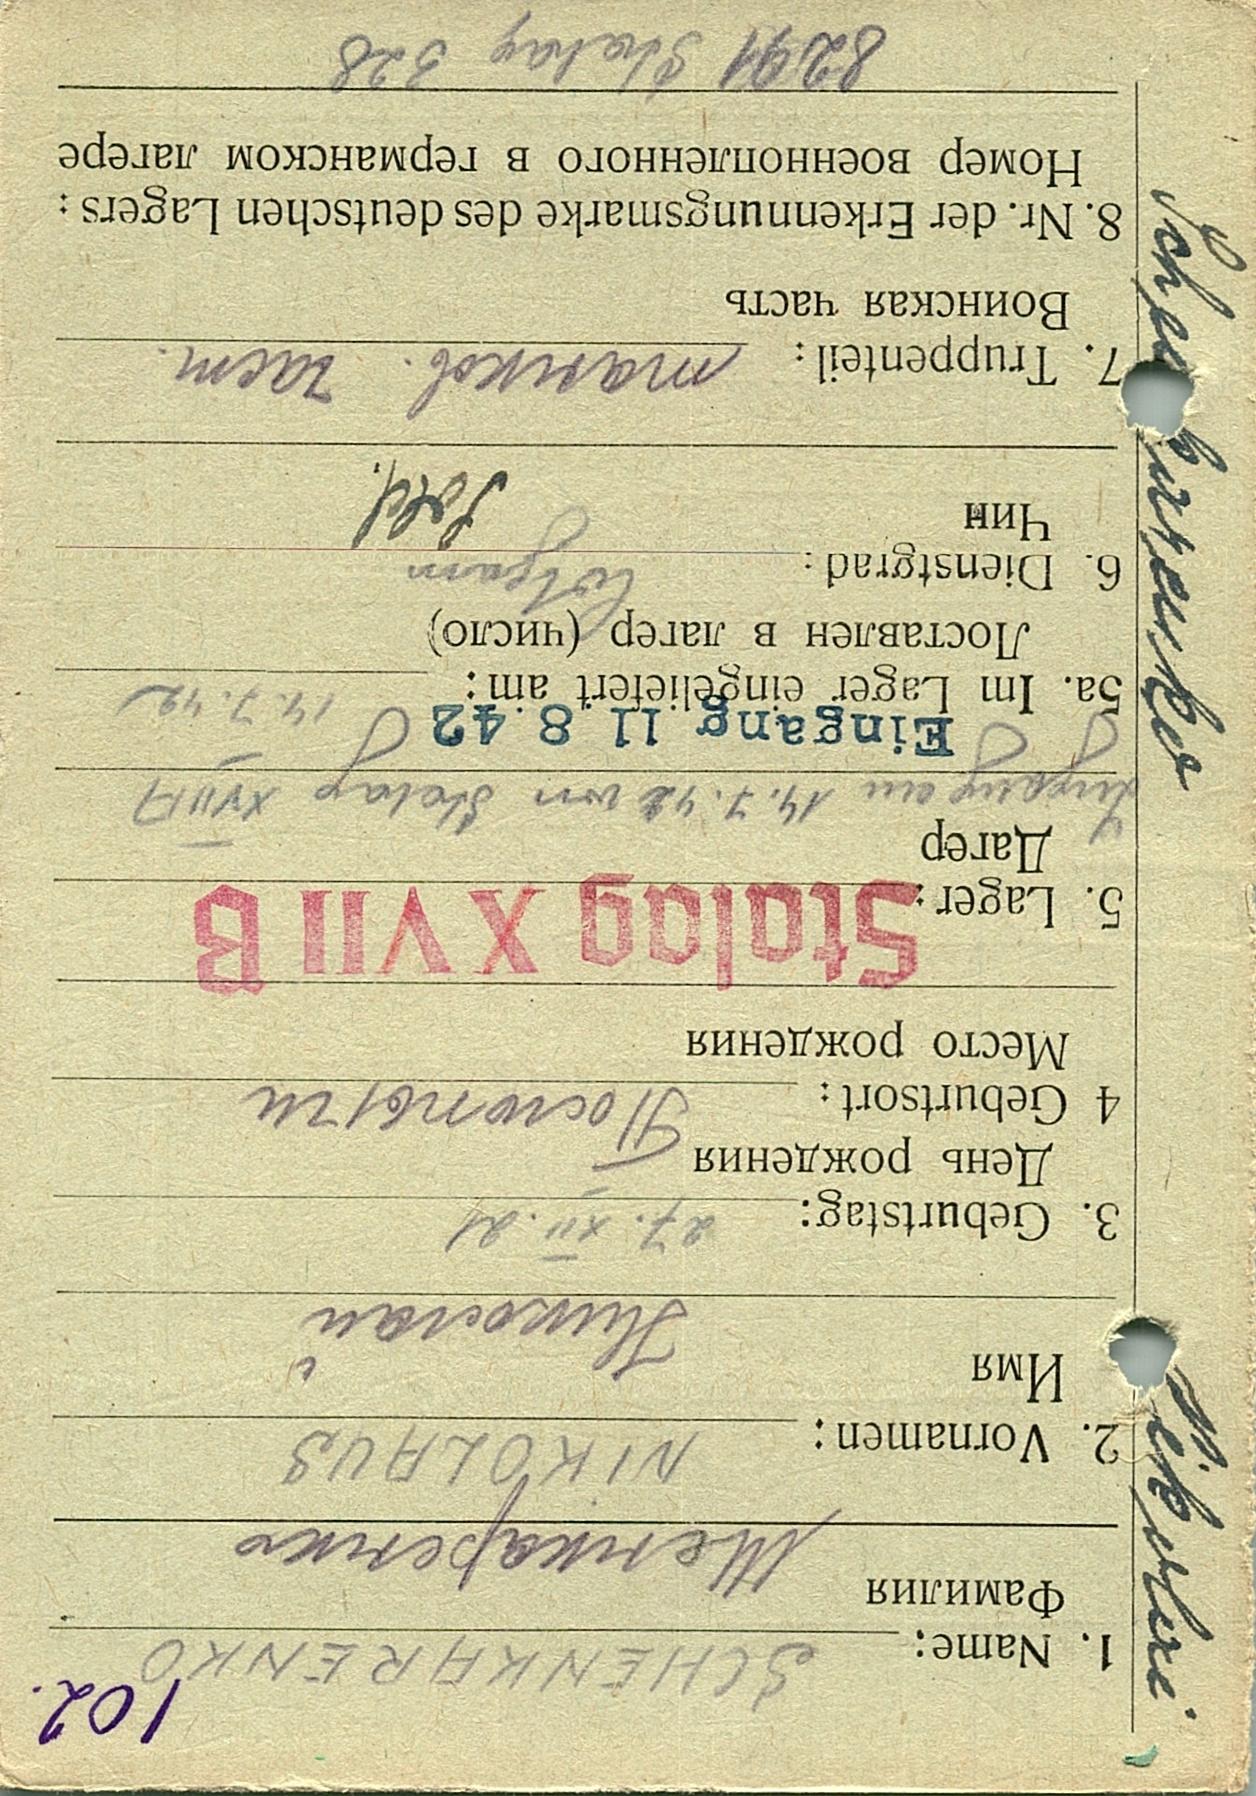 102.
1. Name: SCHENKARENKO
Фамилия Шенкаренко
2. Vornamen: NIKOLAUS
Имя Николай
3. Geburtstag: 27. XII. 21
День рождения
4 Geburtsort: Посютычи
Место рождения
5. Lager: Stalag XVII B
Лагер
Zugang am 14.7.42 von Stalag XVII A
Eingang 11 8. 42
5a. Im Lager eingeliefert am: 14.7.42
Поставлен в лагер (число)
6. Dienstgrad:
Чин Sold.
7. Truppenteil: танков. част.
Воинская часть
8. Nr. der Erkennungsmarke des deutschen Lagers:
Номер военнопленного в германском лагере
8291 Stalag 328
Schenkarenko
Nikolai